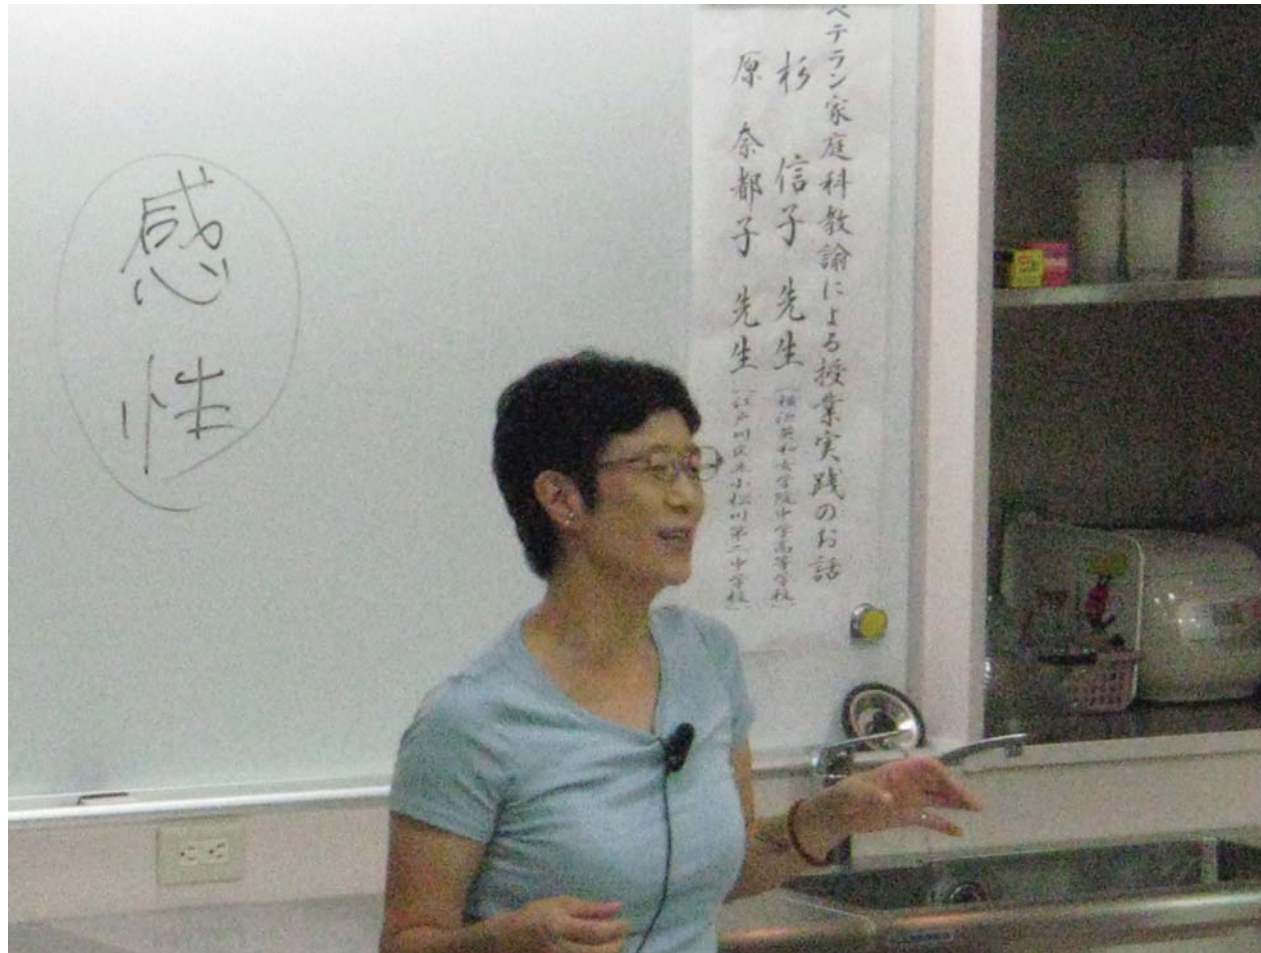 ベテラン家庭科教諭による授業実践のお話
杉 信子 先生（横浜英和女学院中学高等学校）
原 奈都子 先生（江戸川区立小松川第二中学校）
感性